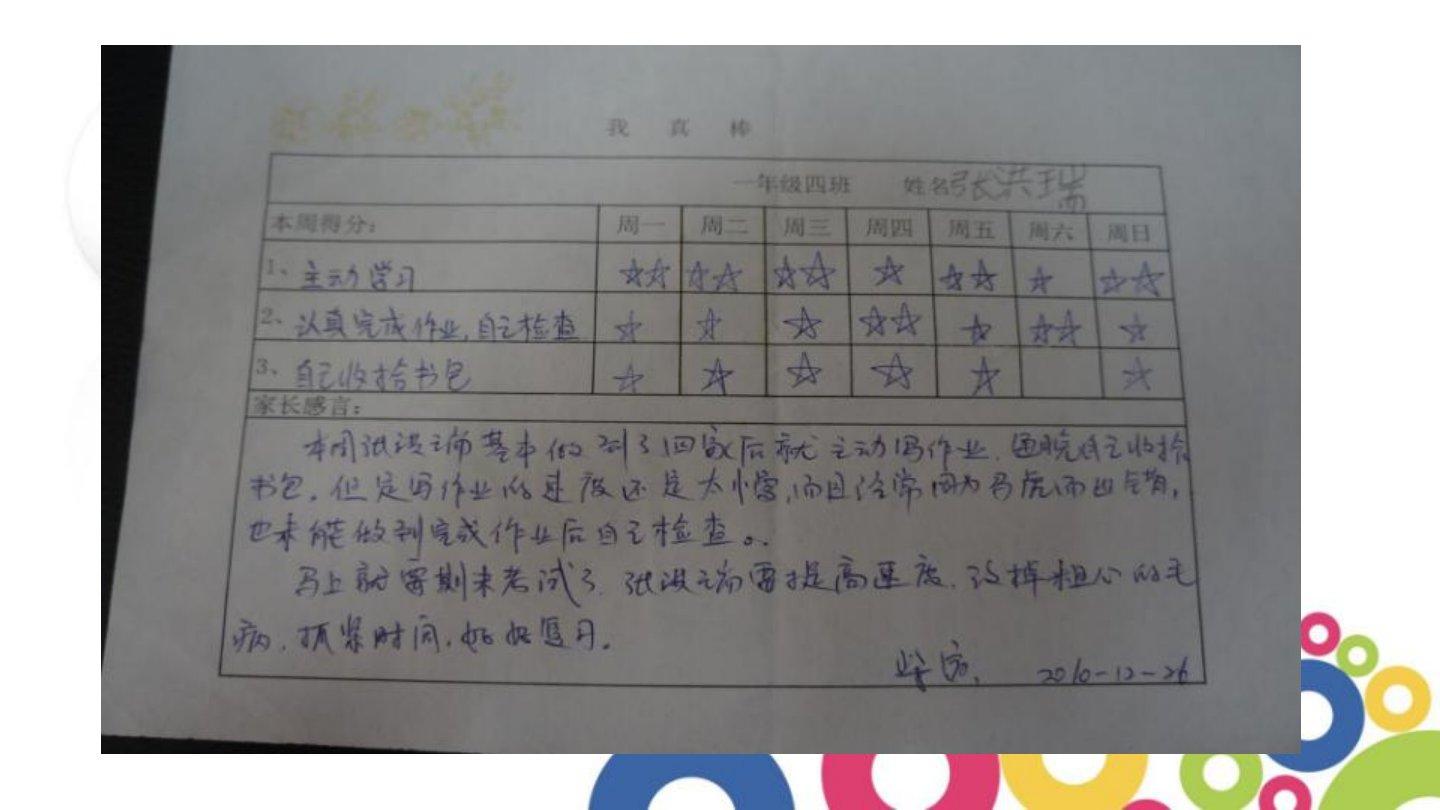 我 真 棒
一年级四班 姓名张洪瑞
本周得分： 周一 周二 周三 周四 周五 周六 周日
1、主动学习 ☆☆ ☆☆ ☆☆ ☆ ☆☆ ☆ ☆☆
2、认真完成作业，自己检查 ☆ ☆ ☆ ☆☆ ☆ ☆☆ ☆
3、自己收拾书包 ☆ ☆ ☆ ☆ ☆ ☆
家长感言：
本周张洪瑞基本做到了回家后就主动写作业，自己收拾
书包。但是写作业的速度还是太慢，而且经常因为马虎而出错，
也未能做到完成作业后自己检查。
马上就要期末考试了，张洪瑞要提高速度，改掉粗心的毛
病，抓紧时间，好好复习。
2010-12-26